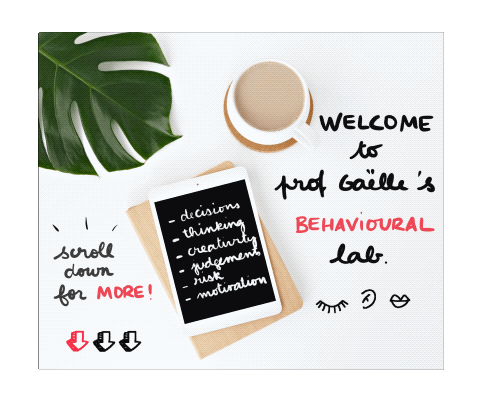 WELCOME
to
prof Gaëlle's
BEHAVIOURAL
lab.
- decisions
- thinking
- creativity
- judgement
- risk
- motivation
scroll
down
for MORE!